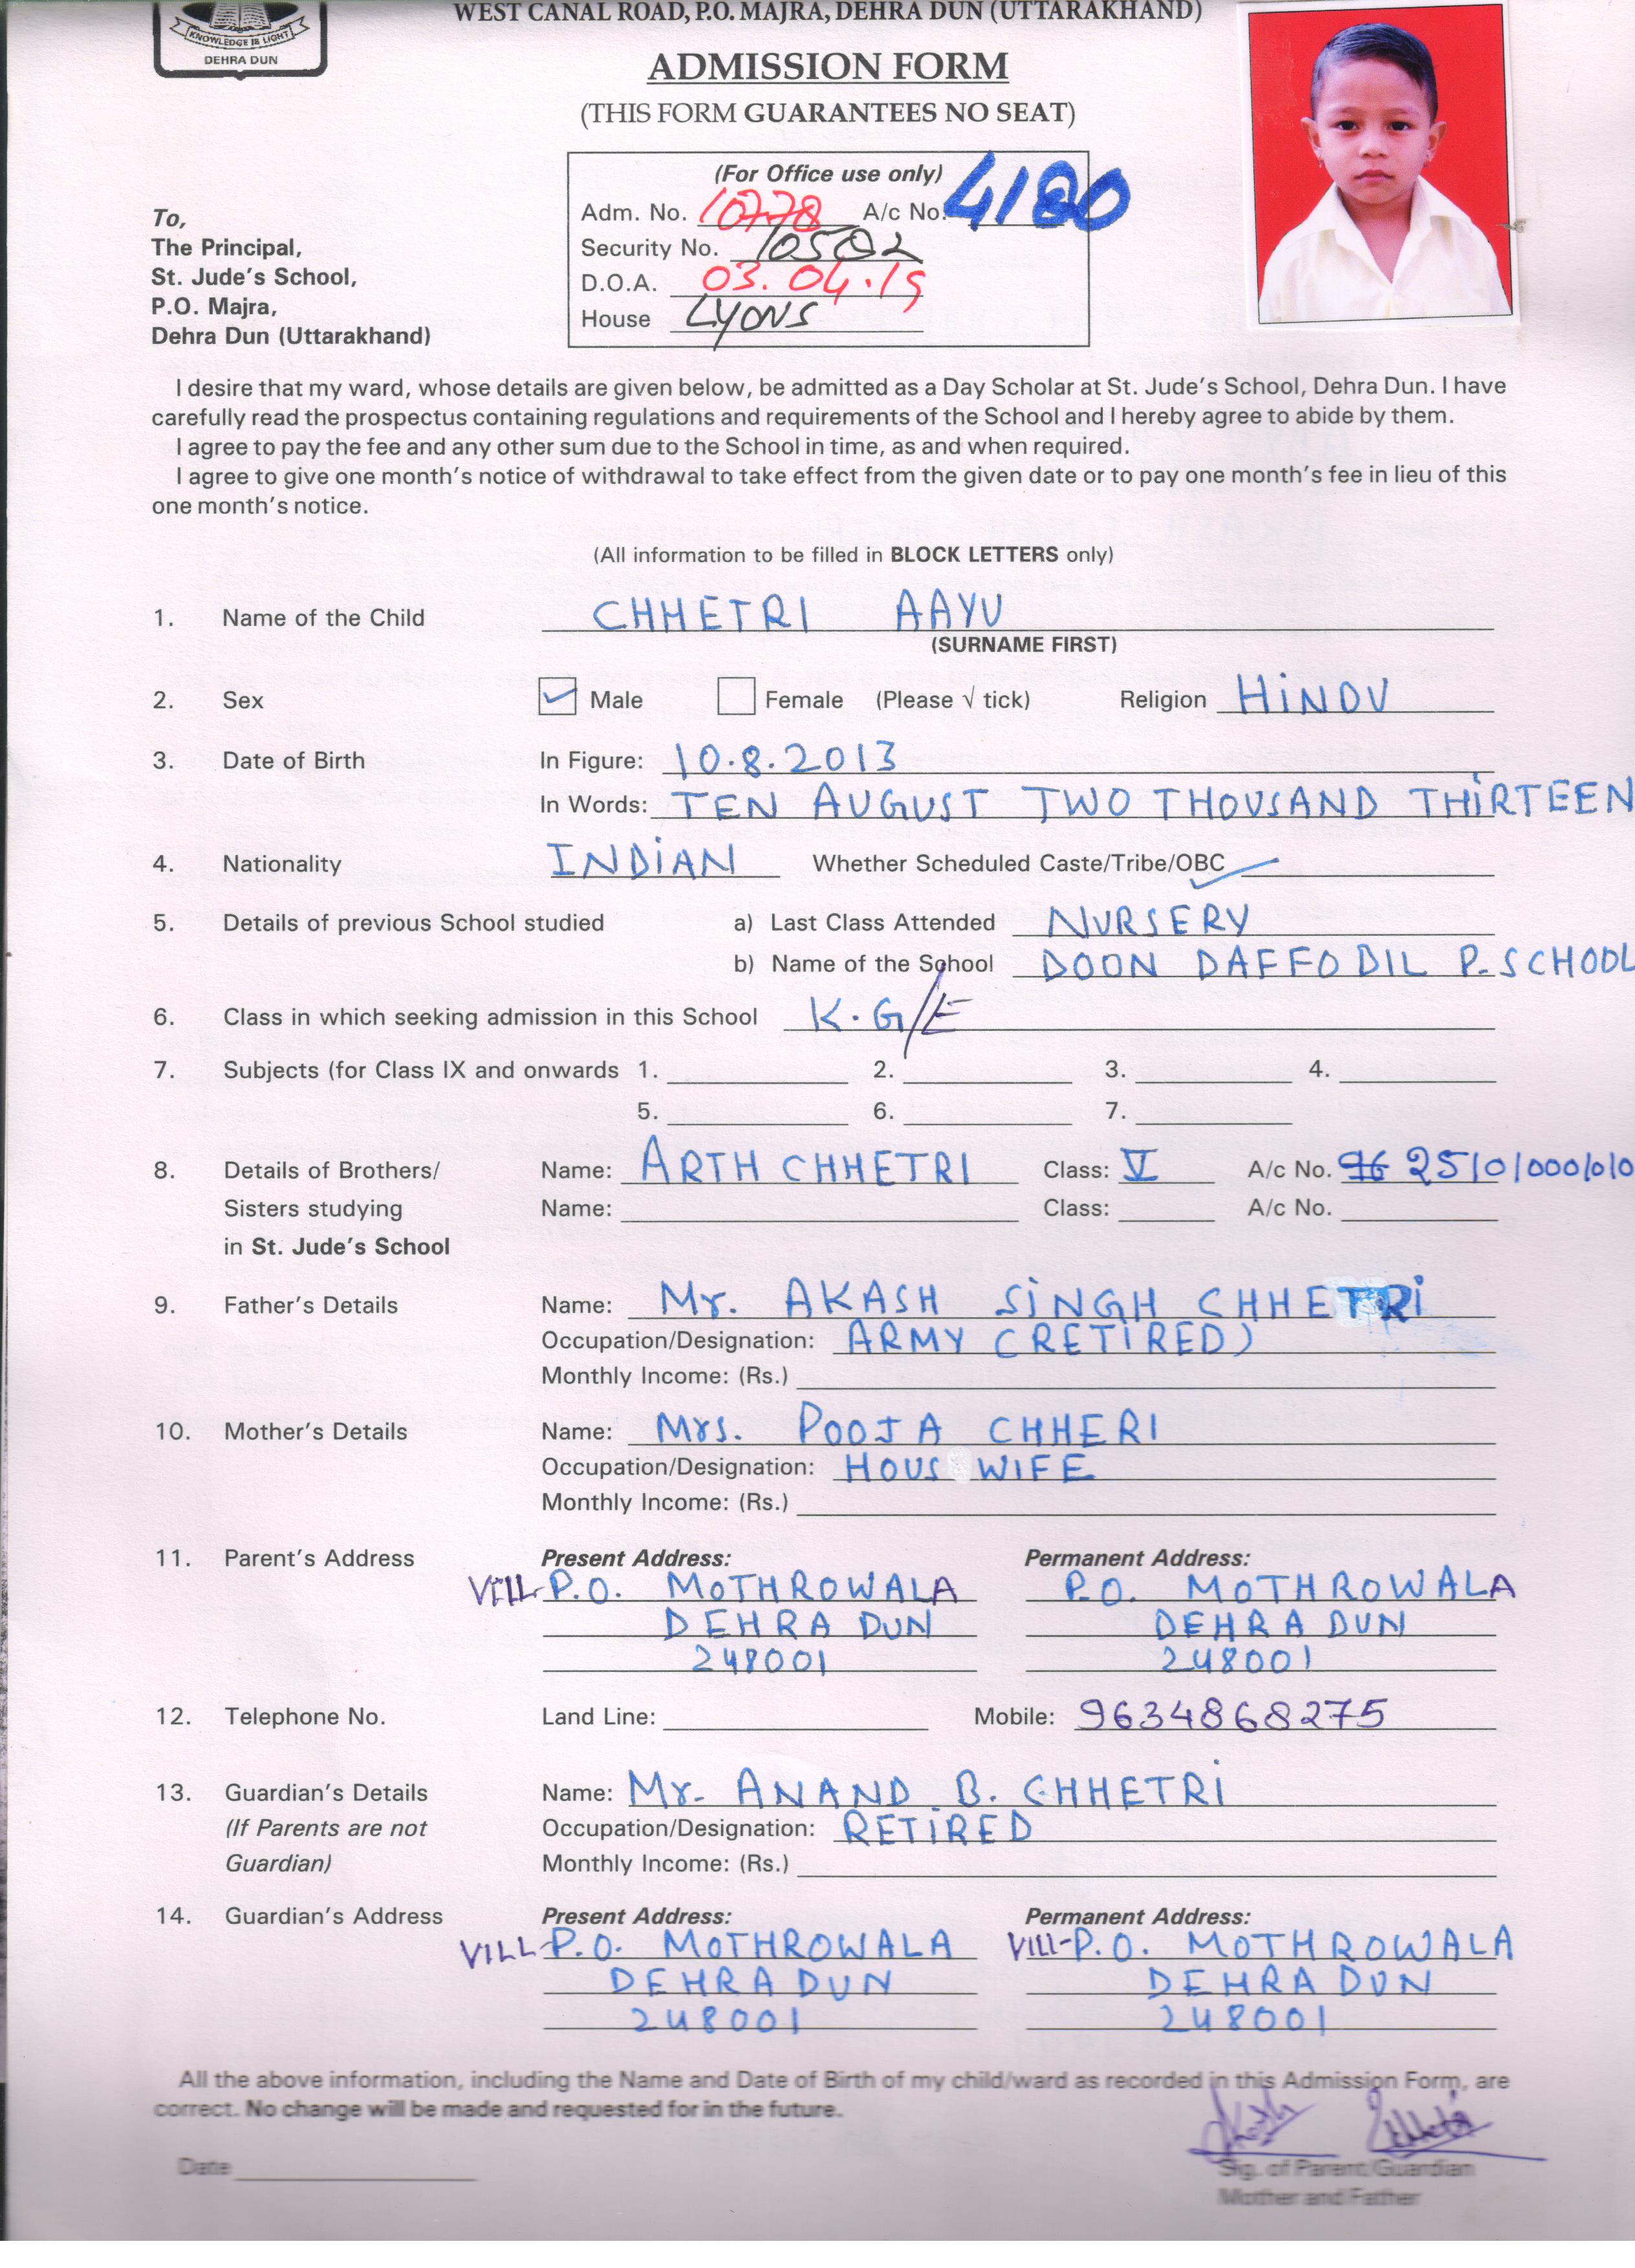 KNOWLEDGE IS LIGHT
DEHRA DUN
WEST CANAL ROAD, P.O. MAJRA, DEHRA DUN (UTTARAKHAND)
ADMISSION FORM
(THIS FORM GUARANTEES NO SEAT)
(For Office use only)
Adm. No. 10778 A/c No. 4180
Security No. 10502
D.O.A. 03.04.19
House LYONS
To,
The Principal,
St. Jude's School,
P.O. Majra,
Dehra Dun (Uttarakhand)
I desire that my ward, whose details are given below, be admitted as a Day Scholar at St. Jude's School, Dehra Dun. I have
carefully read the prospectus containing regulations and requirements of the School and I hereby agree to abide by them.
I agree to pay the fee and any other sum due to the School in time, as and when required.
I agree to give one month's notice of withdrawal to take effect from the given date or to pay one month's fee in lieu of this
one month's notice.
(All information to be filled in BLOCK LETTERS only)
1. Name of the Child CHHETRI AAYU
(SURNAME FIRST)
2. Sex ✓ Male Female (Please √ tick) Religion HiNDU
3. Date of Birth In Figure: 10.8.2013
In Words: TEN AUGUST TWO THOUSAND THiRTEEN
4. Nationality INDiAN Whether Scheduled Caste/Tribe/OBC ✓
5. Details of previous School studied a) Last Class Attended NURSERY
b) Name of the School DOON DAFFODIL P. SCHOOL
6. Class in which seeking admission in this School K.G/E
7. Subjects (for Class IX and onwards 1. 2. 3. 4.
5. 6. 7.
8. Details of Brothers/ Name: ARTH CHHETRI Class: V A/c No. 96 251010001010
Sisters studying Name: Class: A/c No.
in St. Jude's School
9. Father's Details Name: Mr. AKASH SiNGH CHHETRi
Occupation/Designation: ARMY (RETiRED)
Monthly Income: (Rs.)
10. Mother's Details Name: Mrs. POOJA CHHERI
Occupation/Designation: HOUS WIFE
Monthly Income: (Rs.)
11. Parent's Address Present Address: Permanent Address:
VILL-P.O. MOTHROWALA P.O. MOTHROWALA
DEHRA DUN DEHRA DUN
248001 248001
12. Telephone No. Land Line: Mobile: 9634868275
13. Guardian's Details Name: Mr. ANAND B. CHHETRi
(If Parents are not Occupation/Designation: RETiRED
Guardian) Monthly Income: (Rs.)
14. Guardian's Address Present Address: Permanent Address:
VILL-P.O. MOTHROWALA VILL-P.O. MOTHROWALA
DEHRA DUN DEHRA DUN
248001 248001
All the above information, including the Name and Date of Birth of my child/ward as recorded in this Admission Form, are
correct. No change will be made and requested for in the future.
Date
Sig. of Parent/Guardian
Mother and Father